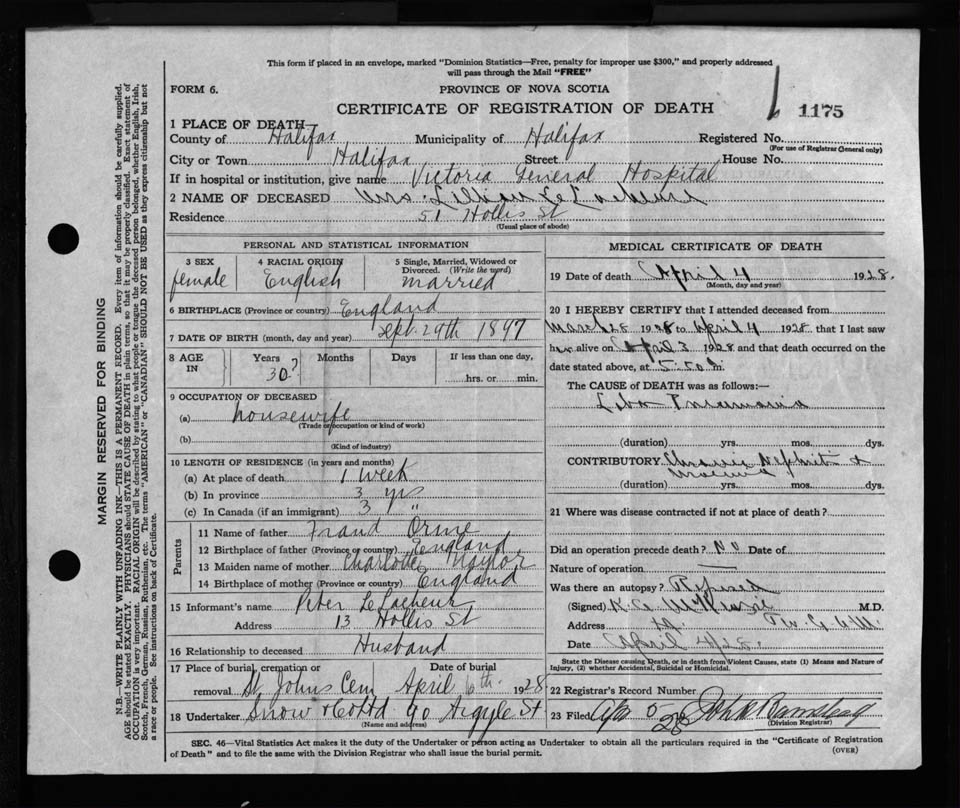 This form if placed in an envelope, marked "Dominion Statistics—Free, penalty for improper use $300," and properly addressed
will pass through the Mail "FREE"
FORM 6.
PROVINCE OF NOVA SCOTIA
CERTIFICATE OF REGISTRATION OF DEATH
1175
1 PLACE OF DEATH—
County of Halifax Municipality of Halifax Registered No.
(For use of Registrar General only)
City or Town Halifax Street House No.
If in hospital or institution, give name Victoria General Hospital
2 NAME OF DECEASED Mrs. Lillian LeLacheur
Residence 51 Hollis St
(Usual place of abode)
PERSONAL AND STATISTICAL INFORMATION
3 SEX 4 RACIAL ORIGIN 5 Single, Married, Widowed or
Divorced. (Write the word)
female English married
6 BIRTHPLACE (Province or country) England
7 DATE OF BIRTH (month, day and year) Sept. 29th 1897
8 AGE IN Years Months Days If less than one day,
30? hrs. or min.
9 OCCUPATION OF DECEASED
(a) housewife
(Trade or occupation or kind of work)
(b)
(Kind of industry)
10 LENGTH OF RESIDENCE (in years and months)
(a) At place of death 1 week
(b) In province 3 yrs
(c) In Canada (if an immigrant) 3 "
Parents
11 Name of father Orme
12 Birthplace of father (Province or country) England
13 Maiden name of mother Charlotte Naylor
14 Birthplace of mother (Province or country) England
15 Informant's name Peter LeLacheur
Address 13 Hollis St
16 Relationship to deceased Husband
17 Place of burial, cremation or Date of burial
removal St. Johns Cem April 6th. 1928
18 Undertaker Snow & Co Ltd 90 Argyle St
(Name and address)
MEDICAL CERTIFICATE OF DEATH
19 Date of death April 4 1928.
(Month, day and year)
20 I HEREBY CERTIFY that I attended deceased from
March 28 1928 to April 4 1928 that I last saw
her alive on April 3 1928 and that death occurred on the
date stated above, at 5:50 m.
The CAUSE OF DEATH was as follows:—
Lobar Pneumonia
(duration) yrs. mos. dys.
CONTRIBUTORY Chronic Nephritis &
Uraemia
(duration) yrs. mos. dys.
21 Where was disease contracted if not at place of death?
Did an operation precede death? No Date of
Nature of operation —
Was there an autopsy? Refused
(Signed) M.D.
Address
Date April 4/28.
State the Disease causing Death, or in death from Violent Causes, state (1) Means and Nature of
Injury, (2) whether Accidental, Suicidal or Homicidal.
22 Registrar's Record Number
23 Filed Apr 5 28
(Division Registrar)
SEC. 46—Vital Statistics Act makes it the duty of the Undertaker or person acting as Undertaker to obtain all the particulars required in the "Certificate of Registration
of Death" and to file the same with the Division Registrar who shall issue the burial permit.
(OVER)
MARGIN RESERVED FOR BINDING
N.B.—WRITE PLAINLY WITH UNFADING INK—THIS IS A PERMANENT RECORD. Every item of information should be carefully supplied.
AGE should be stated EXACTLY. PHYSICIANS should STATE CAUSE OF DEATH in plain terms, so that it may be properly classified. Exact statement of
OCCUPATION is very important. RACIAL ORIGIN will be described by stating to what people or tongue the deceased person belonged, whether English, Irish,
Scotch, French, German, Russian, Ruthenian, etc. The terms "AMERICAN" or "CANADIAN" SHOULD NOT BE USED as they express citizenship but not
a race or people. See instructions on back of Certificate.